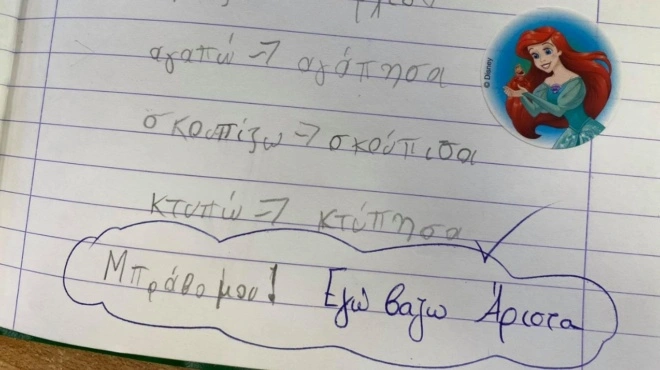 © Disney
αγαπώ → αγάπησα
σκουπίζω → σκούπισα
κτυπώ → κτύπησα
Μπράβο μου! Εγώ βαζω Άριστα